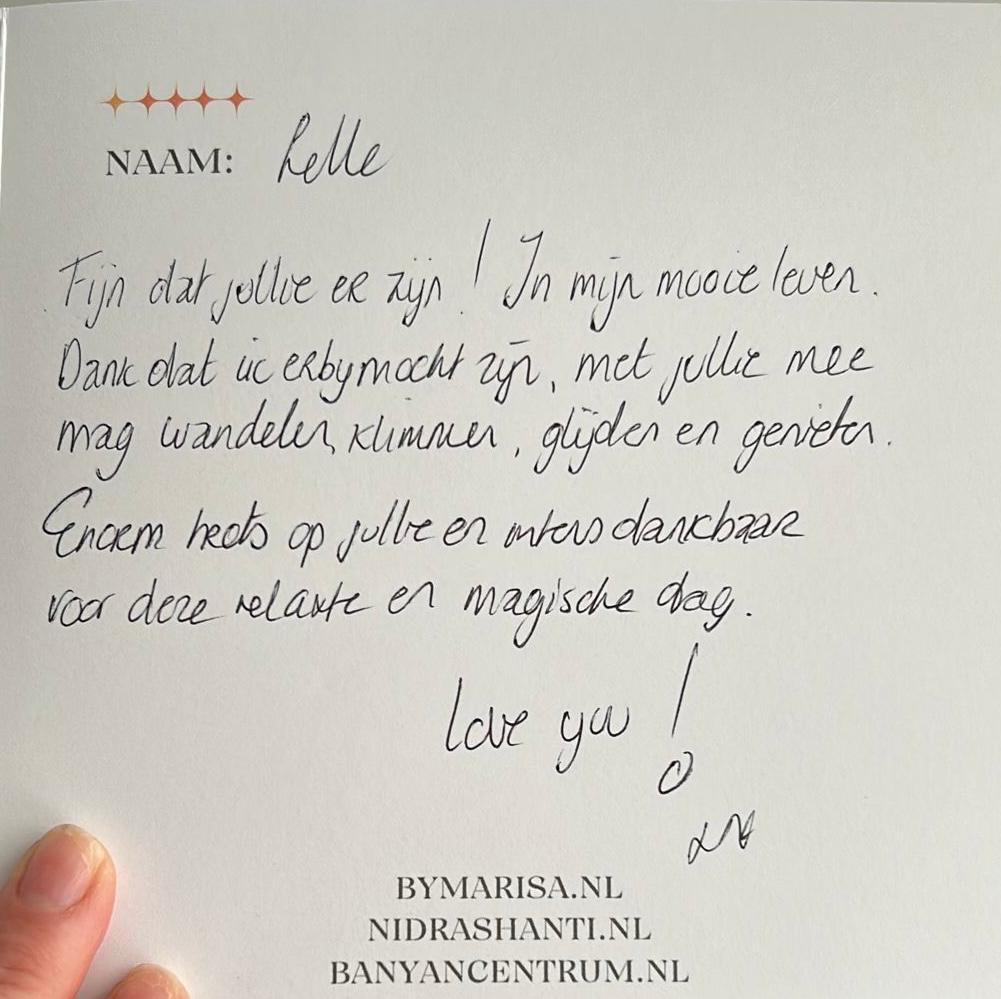 NAAM: Lelle
Fijn dat jullie er zijn! In mijn mooie leven.
Dank dat ik erbij mocht zijn, met jullie mee
mag wandelen, klimmen, glijden en genieten.
Enorm trots op jullie en intens dankbaar
voor deze relaxte en magische dag.
love you!
BYMARISA.NL
NIDRASHANTI.NL
BANYANCENTRUM.NL